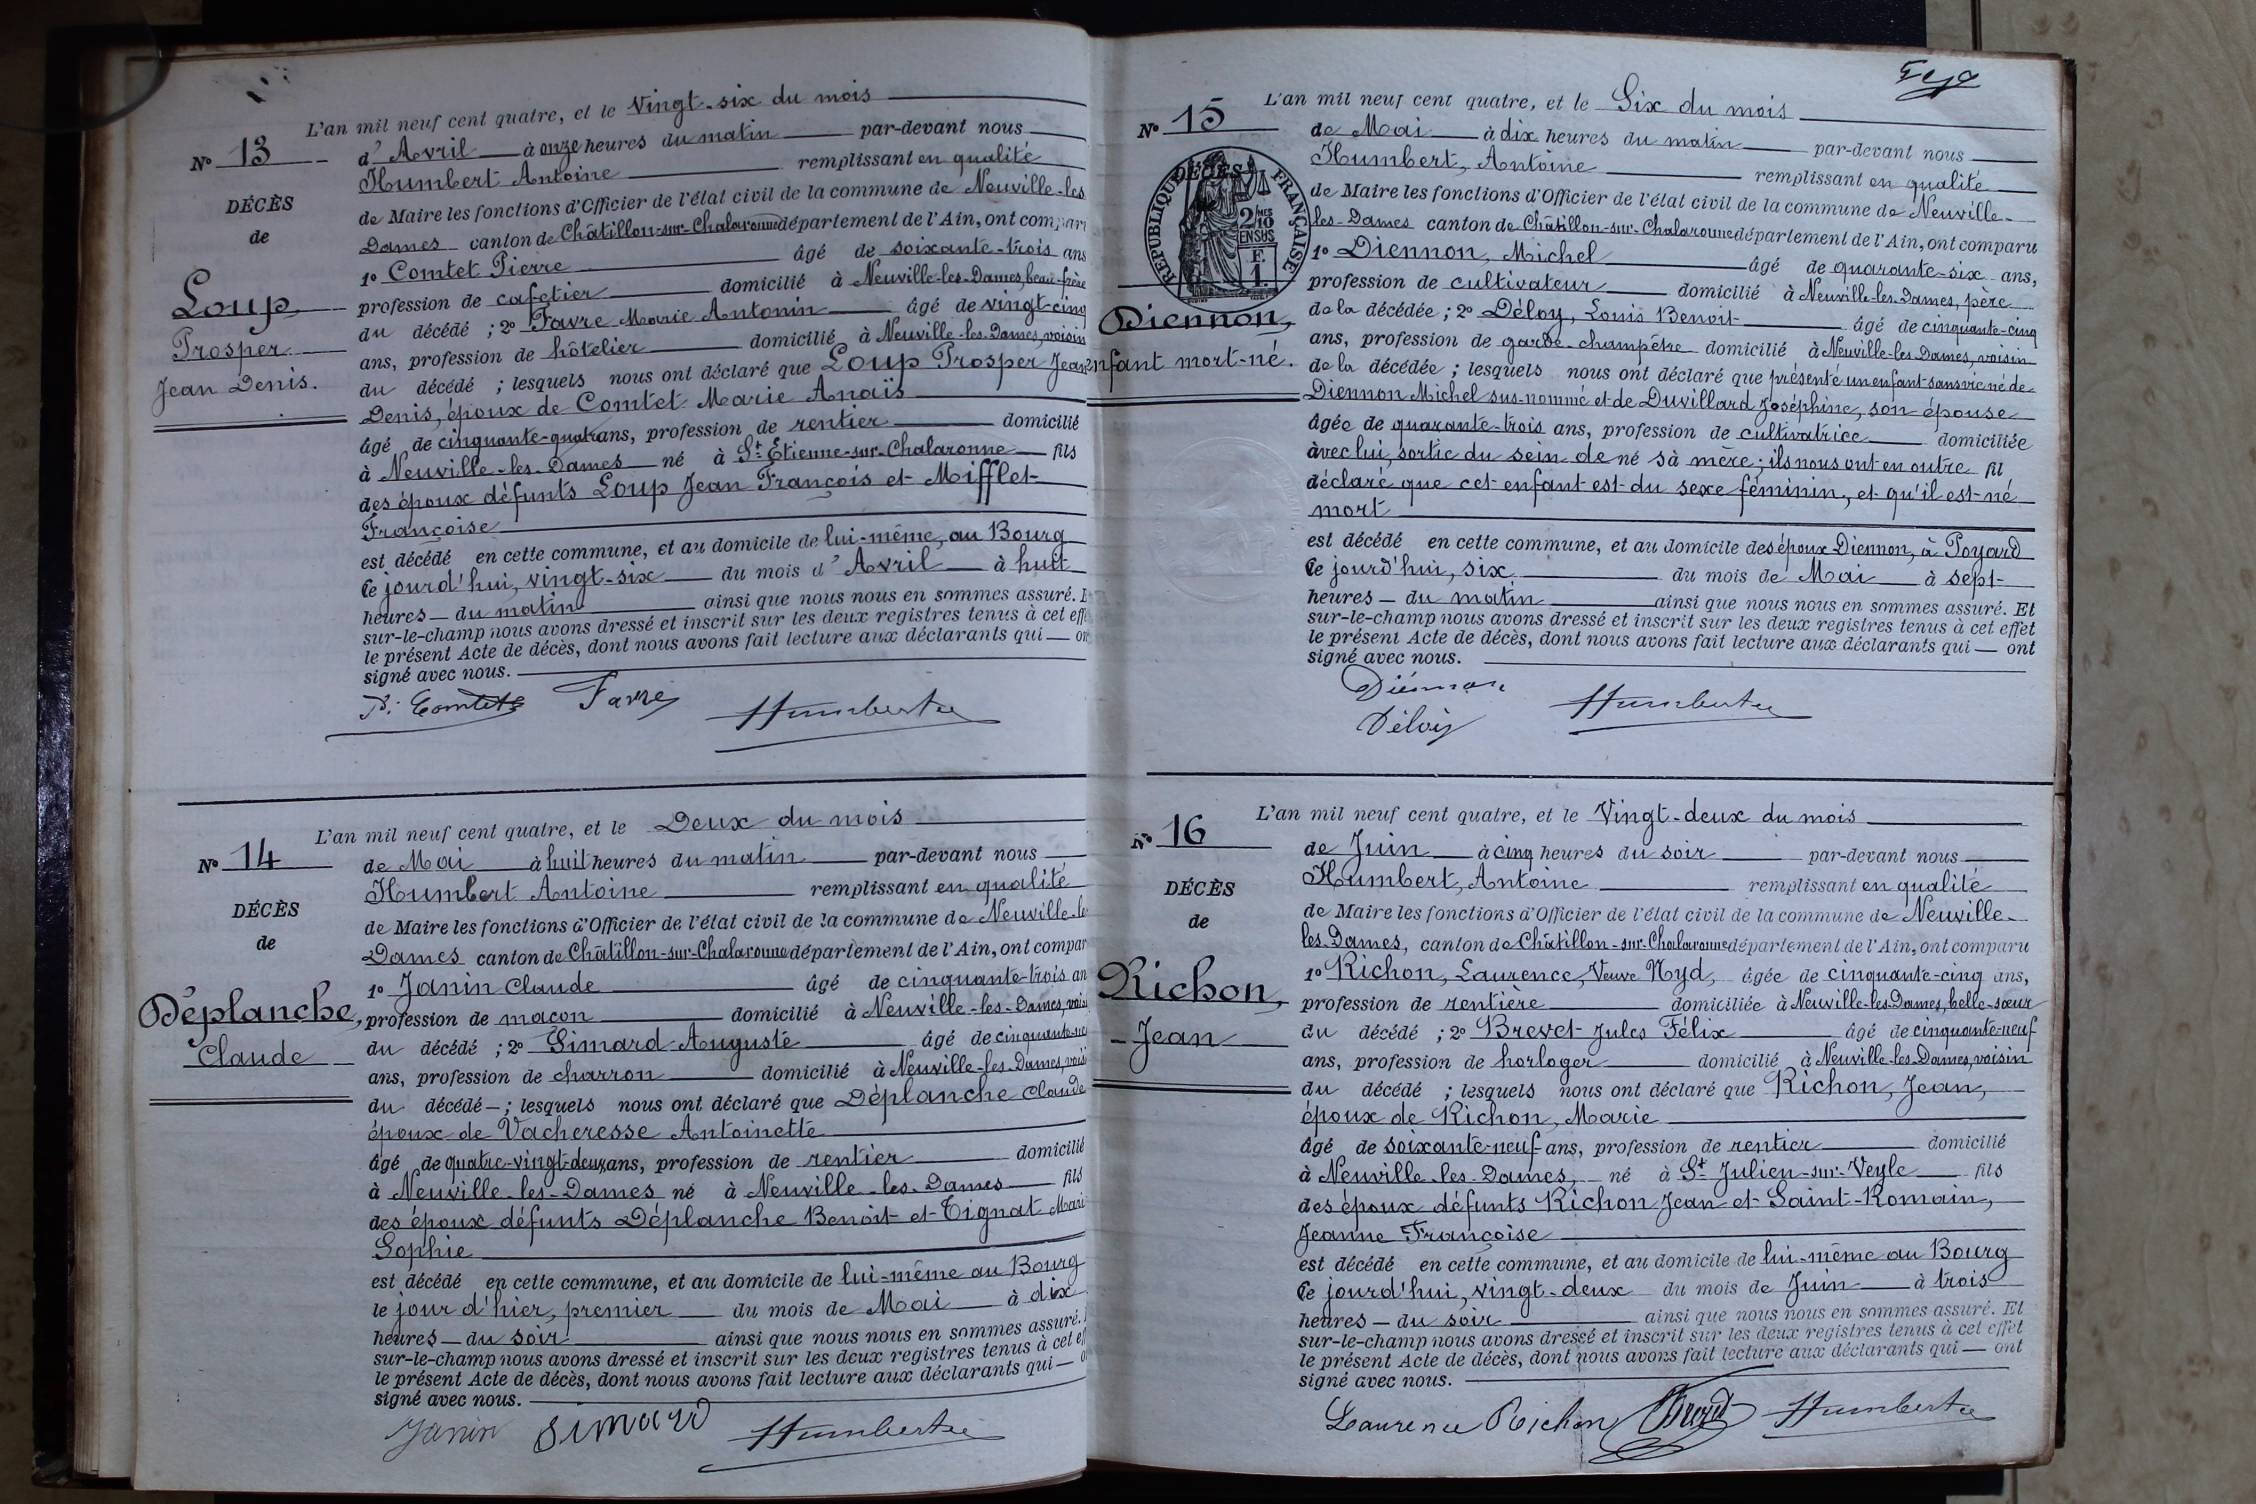 L'an mil neuf cent quatre, et le Vingt-six du mois
N° 13
d'Avril à onze heures du matin par-devant nous
Humbert Antoine remplissant en qualité
DÉCÈS
de Maire les fonctions d'Officier de l'état civil de la commune de Neuville-les
de
Dames canton de Châtillon-sur-Chalaronne département de l'Ain, ont comparu
1° Comtet Pierre âgé de soixante-trois ans
Loup
profession de cafetier domicilié à Neuville-les-Dames, beau-frère
du décédé ; 2° Favre Marie Antonin âgé de vingt-cinq
Prosper
ans, profession de hôtelier domicilié à Neuville-les-Dames, voisin
Jean Denis.
du décédé ; lesquels nous ont déclaré que Loup Prosper Jean
Denis, époux de Comtet Marie Anaïs
âgé de cinquante-quatre ans, profession de rentier domicilié
à Neuville-les-Dames né à St Etienne-sur-Chalaronne fils
des époux défunts Loup Jean François et Mifflet
Françoise
est décédé en cette commune, et au domicile de lui-même, au Bourg
Ce jourd'hui, vingt-six du mois d'Avril à huit
heures du matin ainsi que nous nous en sommes assuré. E
sur-le-champ nous avons dressé et inscrit sur les deux registres tenus à cet effe
le présent Acte de décès, dont nous avons fait lecture aux déclarants qui — on
signé avec nous.
P. Comtet Favre Humbert
L'an mil neuf cent quatre, et le Deux du mois
N° 14
de Mai à huit heures du matin par-devant nous
Humbert Antoine remplissant en qualité
DÉCÈS
de Maire les fonctions d'Officier de l'état civil de la commune de Neuville-le
de
Dames canton de Châtillon-sur-Chalaronne département de l'Ain, ont compar
1° Janin Claude âgé de cinquante-trois an
Déplanche,
profession de maçon domicilié à Neuville-les-Dames, vois
Claude
du décédé ; 2° Simard Auguste âgé de cinquante
ans, profession de charron domicilié à Neuville-les-Dames, vois
du décédé — ; lesquels nous ont déclaré que Déplanche Claude
époux de Vacheresse Antoinette
âgé de quatre-vingt-deux ans, profession de rentier domicilié
à Neuville-les-Dames né à Neuville-les-Dames fils
des époux défunts Déplanche Benoit et Tignat Marie
Sophie
est décédé en cette commune, et au domicile de lui-même au Bourg
le jour d'hier, premier du mois de Mai à dix
heures — du soir ainsi que nous nous en sommes assuré.
sur-le-champ nous avons dressé et inscrit sur les deux registres tenus à cet ef
le présent Acte de décès, dont nous avons fait lecture aux déclarants qui — o
signé avec nous.
Janin Simard Humbert
L'an mil neuf cent quatre, et le Six du mois
N° 15
de Mai à dix heures du matin par-devant nous
Humbert, Antoine remplissant en qualité
DÉCÈS
RÉPUBLIQUE FRANÇAISE
2/10 MES EN SUS
F. 1.
de Maire les fonctions d'Officier de l'état civil de la commune de Neuville-
les-Dames canton de Châtillon-sur-Chalaronne département de l'Ain, ont comparu
1° Diennon, Michel âgé de quarante-six ans,
profession de cultivateur domicilié à Neuville-les-Dames, père
Diennon,
de la décédée ; 2° Déloy, Louis Benoit âgé de cinquante-cinq
ans, profession de garde-champêtre domicilié à Neuville-les-Dames, voisin
enfant mort-né.
de la décédée ; lesquels nous ont déclaré que présenté un enfant sans vie né de
Diennon Michel sus-nommé et de Duvillard Joséphine, son épouse
âgée de quarante-trois ans, profession de cultivatrice domiciliée
avec lui, sortie du sein de né sà mère ; ils nous ont en outre fil
déclaré que cet enfant est du sexe féminin, et qu'il est né
mort
est décédé en cette commune, et au domicile des époux Diennon, à Poyard
Ce jourd'hui, six du mois de Mai à sept
heures — du matin ainsi que nous nous en sommes assuré. Et
sur-le-champ nous avons dressé et inscrit sur les deux registres tenus à cet effet
le présent Acte de décès, dont nous avons fait lecture aux déclarants qui — ont
signé avec nous.
Diennon Humbert
Déloy
L'an mil neuf cent quatre, et le Vingt-deux du mois
N° 16
de Juin à cinq heures du soir par-devant nous
Humbert, Antoine remplissant en qualité
DÉCÈS
de Maire les fonctions d'Officier de l'état civil de la commune de Neuville-
de
les-Dames, canton de Châtillon-sur-Chalaronne département de l'Ain, ont comparu
1° Richon, Laurence, Veuve Nyd, âgée de cinquante-cinq ans,
Richon,
profession de rentière domiciliée à Neuville-les-Dames, belle-sœur
Jean
du décédé ; 2° Brevet Jules Félix âgé de cinquante-neuf
ans, profession de horloger domicilié à Neuville-les-Dames, voisin
du décédé ; lesquels nous ont déclaré que Richon, Jean,
époux de Richon, Marie
âgé de soixante-neuf ans, profession de rentier domicilié
à Neuville-les-Dames, né à St Julien-sur-Veyle fils
des époux défunts Richon Jean et Saint-Romain,
Jeanne Françoise
est décédé en cette commune, et au domicile de lui-même au Bourg
Ce jourd'hui, vingt-deux du mois de Juin à trois
heures — du soir ainsi que nous nous en sommes assuré. Et
sur-le-champ nous avons dressé et inscrit sur les deux registres tenus à cet effet
le présent Acte de décès, dont nous avons fait lecture aux déclarants qui — ont
signé avec nous.
Laurence Richon Brevet Humbert